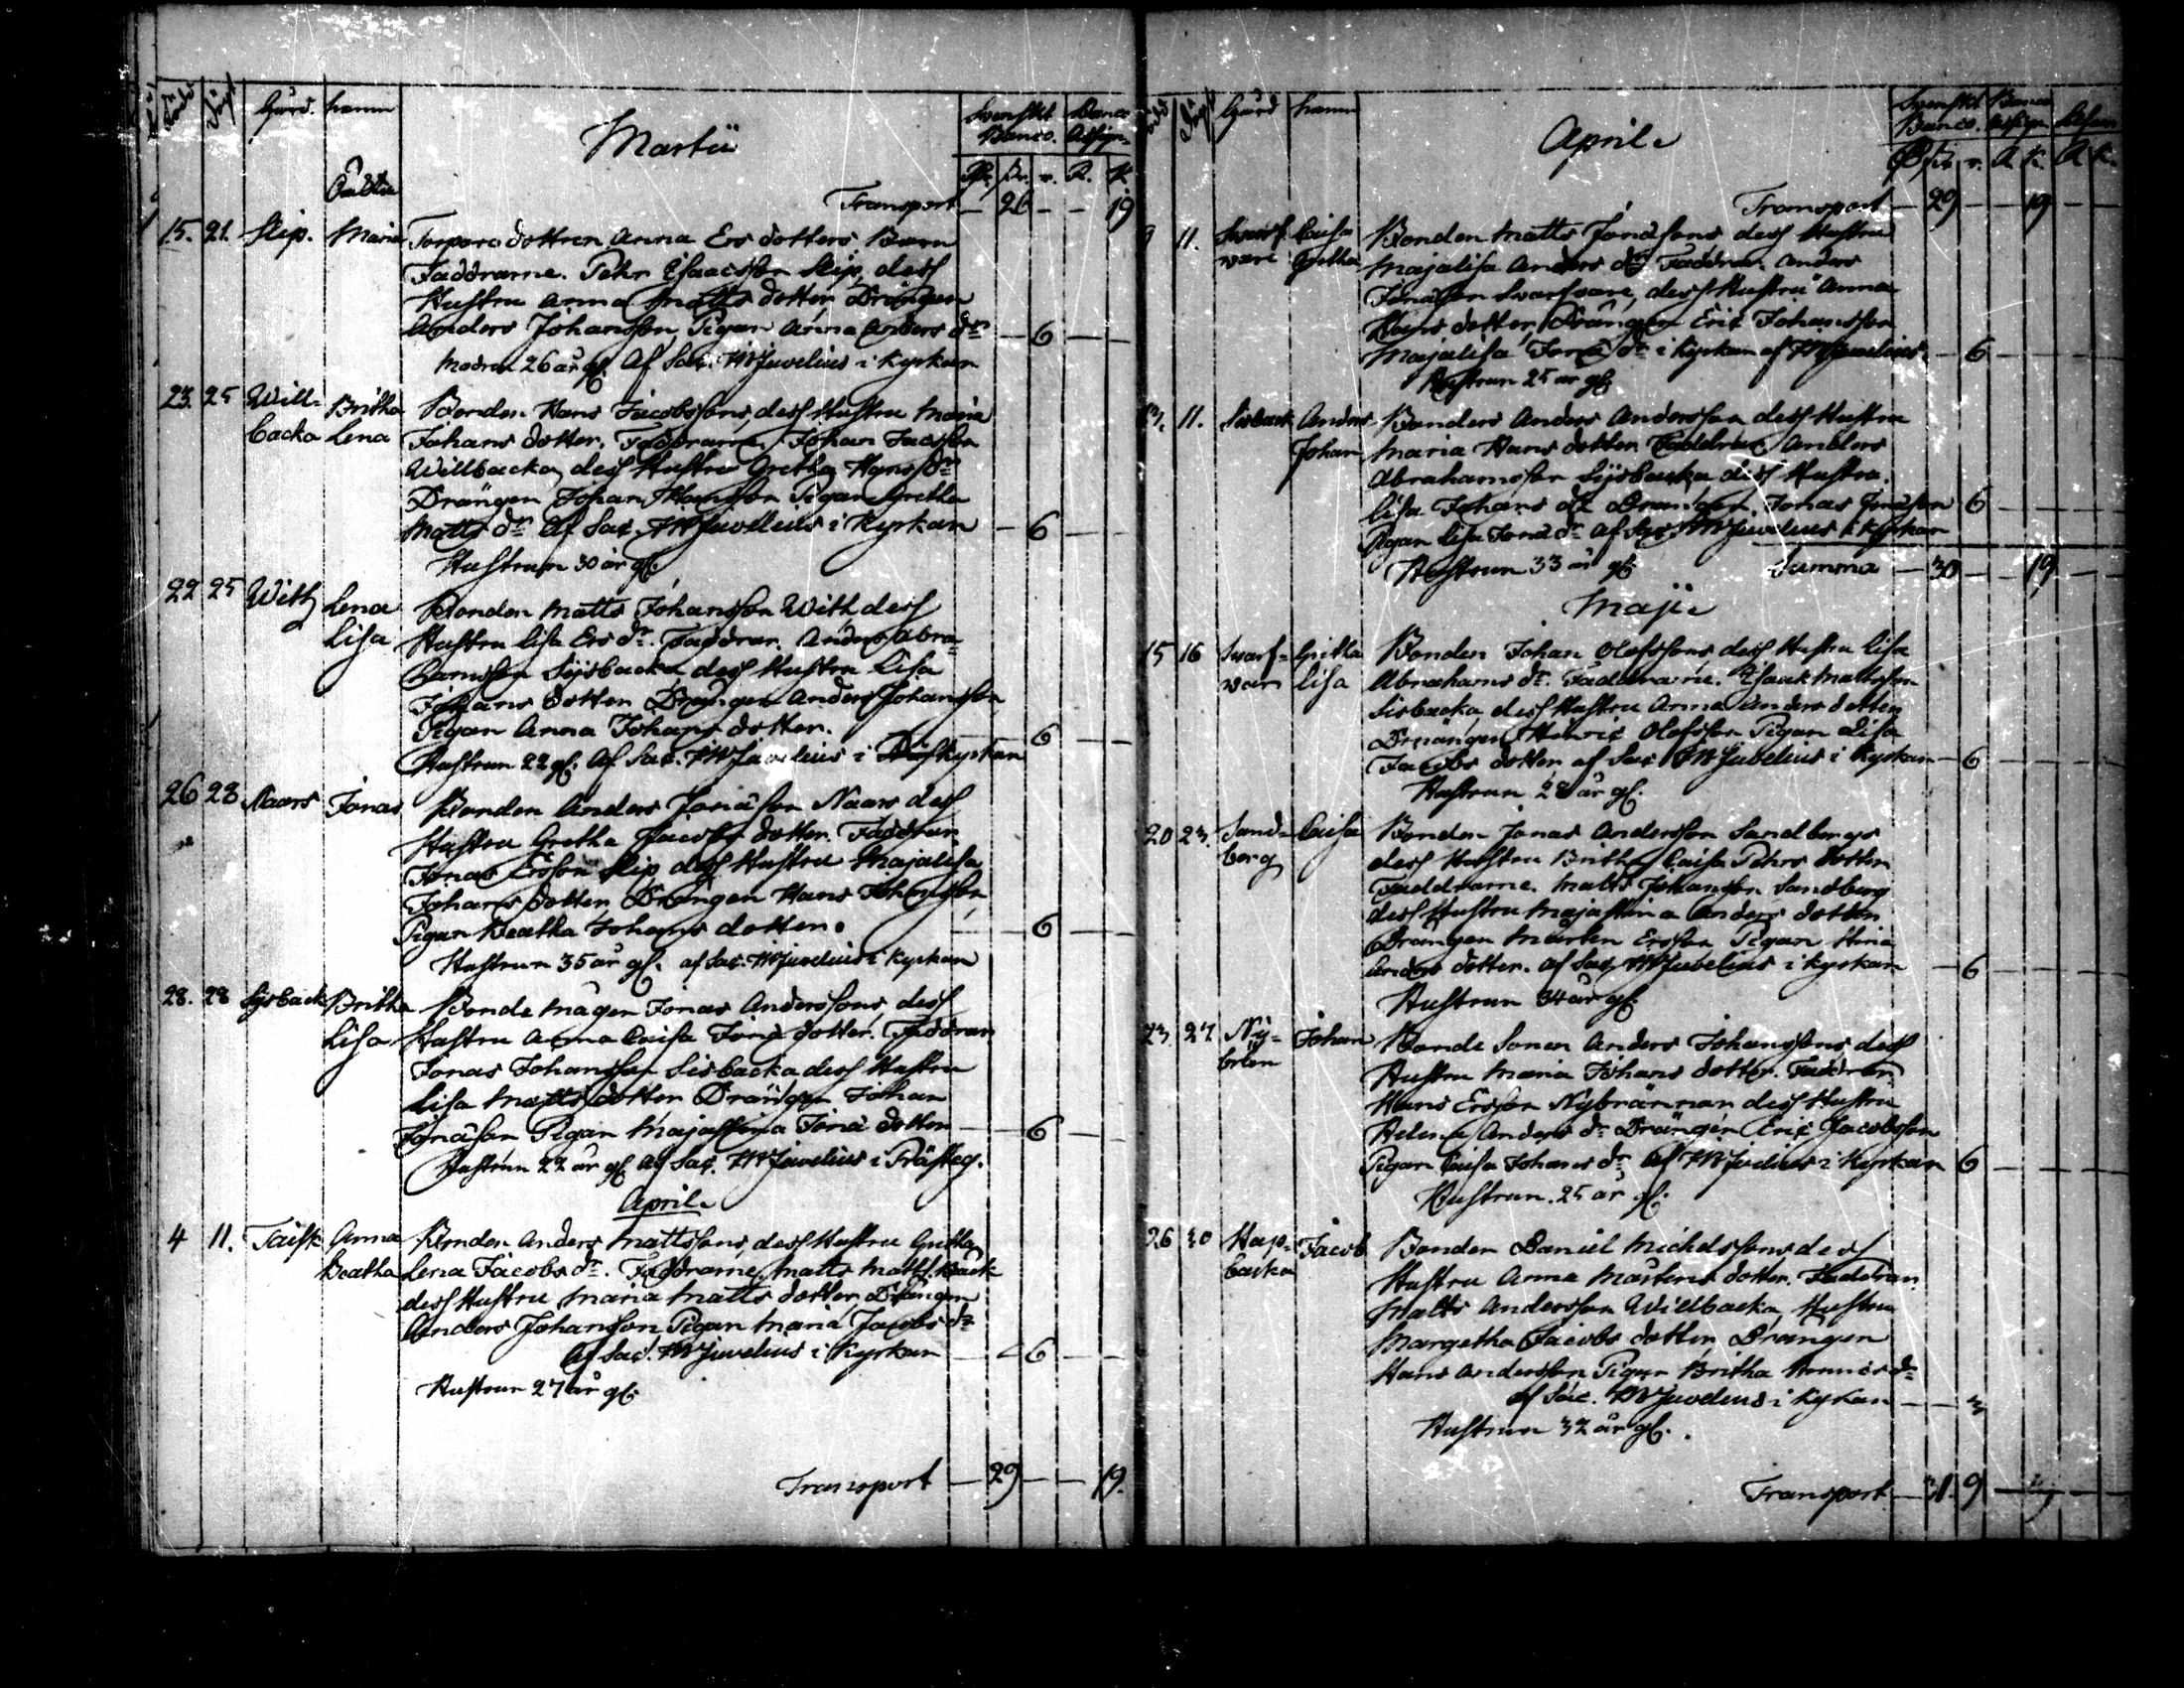 Född Döpt Gård. Namn
Martii
Svenskt Banco. Banco Assign.
Rr. Sk. r. R. K.
Oäkta
Transport — 26 — — 19
15. 21. Slip. Maria Torpare dottren Anna Ers dotters Barn
Faddrarne. Pehr Isaacsson Slip, dess
Hustru Anna Matts dotter Drängen
Anders Johansson, Pigan Anna Anders dr — 6
Modren 26 år gl. Af Sac. HWJuvelius i Kyrkan
23. 25 Will- Britha Bonden Hans Jacobssons, dess Hustru Maria
backa Lena Johans dotter. Faddrarne. Johan Jacsson
Willbacka, dess Hustru Gretha Hans dr
Drängen Johan Hansson Pigan Gretha
Matts dr Af Sac. HWJuvelius i Kyrkan — 6
Hustrun 30 år gl.
22 25 With Lena Bonden Matts Johansson With dess
Lisa Hustru Lisa Ers dr. Faddrar. Anders Abra-
hamsson Sijsbacka dess Hustru Lisa
Johans dotter Drängen Anders Johansson
Pigan Anna Johans dotter. 6
Hustrun 22 gl. Af Sac. HWJuvelius i Kyrkan
26 28 Naars Jonas Bonden Anders Jonasson Naars dess
Hustru Gretha Jacobs dotter. Faddrar.
Jonas Ersson Slip dess Hustru Majalisa
Johans dotter Drängen Hans Johansson
Pigan Beatha Johans dotter. — 6
Hustrun 35 år gl. af Sac. HWJuvelius i Kyrkan
28. 28 Sijsback Britha Bonde Mågen Jonas Anderssons, dess
Lisa Hustru Anna Caisa Jona dotter. Faddrar
Jonas Johansson Sisbacka dess Hustru
Lisa Matts dotter Drängen Johan
Jonasson Pigan Majastina Jona dotter — 6
Hustrun 22 år gl. Af Sac. HWJuvelius i Prästeg.
April
4 11. Taisk Anna Bonden Anders Mattssons, dess Hustru Gretha
Beatha Lena Jacobs dr. Faddrarne. Matts Matts. Back
dess Hustru Maria Matts dotter, Drängen
Anders Johansson Pigan Maria Jacobs dr
Af Sac. HWJuvelius i Kyrkan — 6
Hustrun 27 år gl.
Transport — 29 — — 19.
Gård Namn
April
Svenskt Banco. Banco Assign.
Transport — 29 — 19
9 11. Swarf- Caisa Bonden Matts Jonassons dess Hustru
vare Gretha Majalisa Anders dr Faddrar. Anders
Jonasson Swarfvare, dess Hustru Anna
Hans dotter, Drängen Eric Johansson
Majalisa Jona dr i Kyrkan af HWJuvelius — 6
Hustrun 25 år gl.
11. Sisback Anders Bonden Anders Andersson dess Hustru
Johan Maria Hans dotter Faddrar Anders
Abrahamsson Sijsbacka dess Hustru.
Lisa Johans dr Drängen. Jonas Jonasson 6
Pigan Lisa Jona dr af Sac. HWJuvelius i Kyrkan
Hustrun 33 år gl. Summa — 30 — 19
Maji
15 16 Swarf- Gretha Bonden Johan Olofssons dess Hustru Lisa
var Lisa Abrahams dr. Faddrarne. Isaak Mattsson
Sisbacka, dess Hustru Anna Anders dotter
Drängen Henric Olofsson Pigan Lisa
Jacobs dotter af Sac HWJuvelius i Kyrkan — 6
Hustrun 28 år gl.
20 23. Sand- Caisa Bonden Jonas Andersson Sandbergs
berg dess Hustru Britha Caisa Pehrs dotter
Faddrarne. Matts Johansson Sandberg
dess Hustru Majastina Anders dotter
Drängen Mårten Ersson Pigan Stina
Anders dotter. af Sac HWJuvelius i Kyrkan — 6
Hustrun 34 år gl.
23 27. Ny- Johan Bonde Sonen Anders Johanssons dess
Hustru Maria Johans dotter. Faddrar.
Hans Ersson Nybrännar dess Hustru
Helena Anders dr Drängen Eric Jacobsson
Pigan Caisa Johans dr Af HWJuvelius i Kyrkan 6
Hustrun. 25 år gl.
26 30 Jacob Bonden Daniel Michelssons dess
backa Hustru Anna Mårtens dotter. Faddrar.
Matts Andersson Willbacka, Hustru
Margetha Jacobs dotter, Drängen
Hans Andersson Pigan Britha
af Sac. HWJuvelius i Kyrkan — 3
Hustrun 32 år gl.
Transport — 31. 9